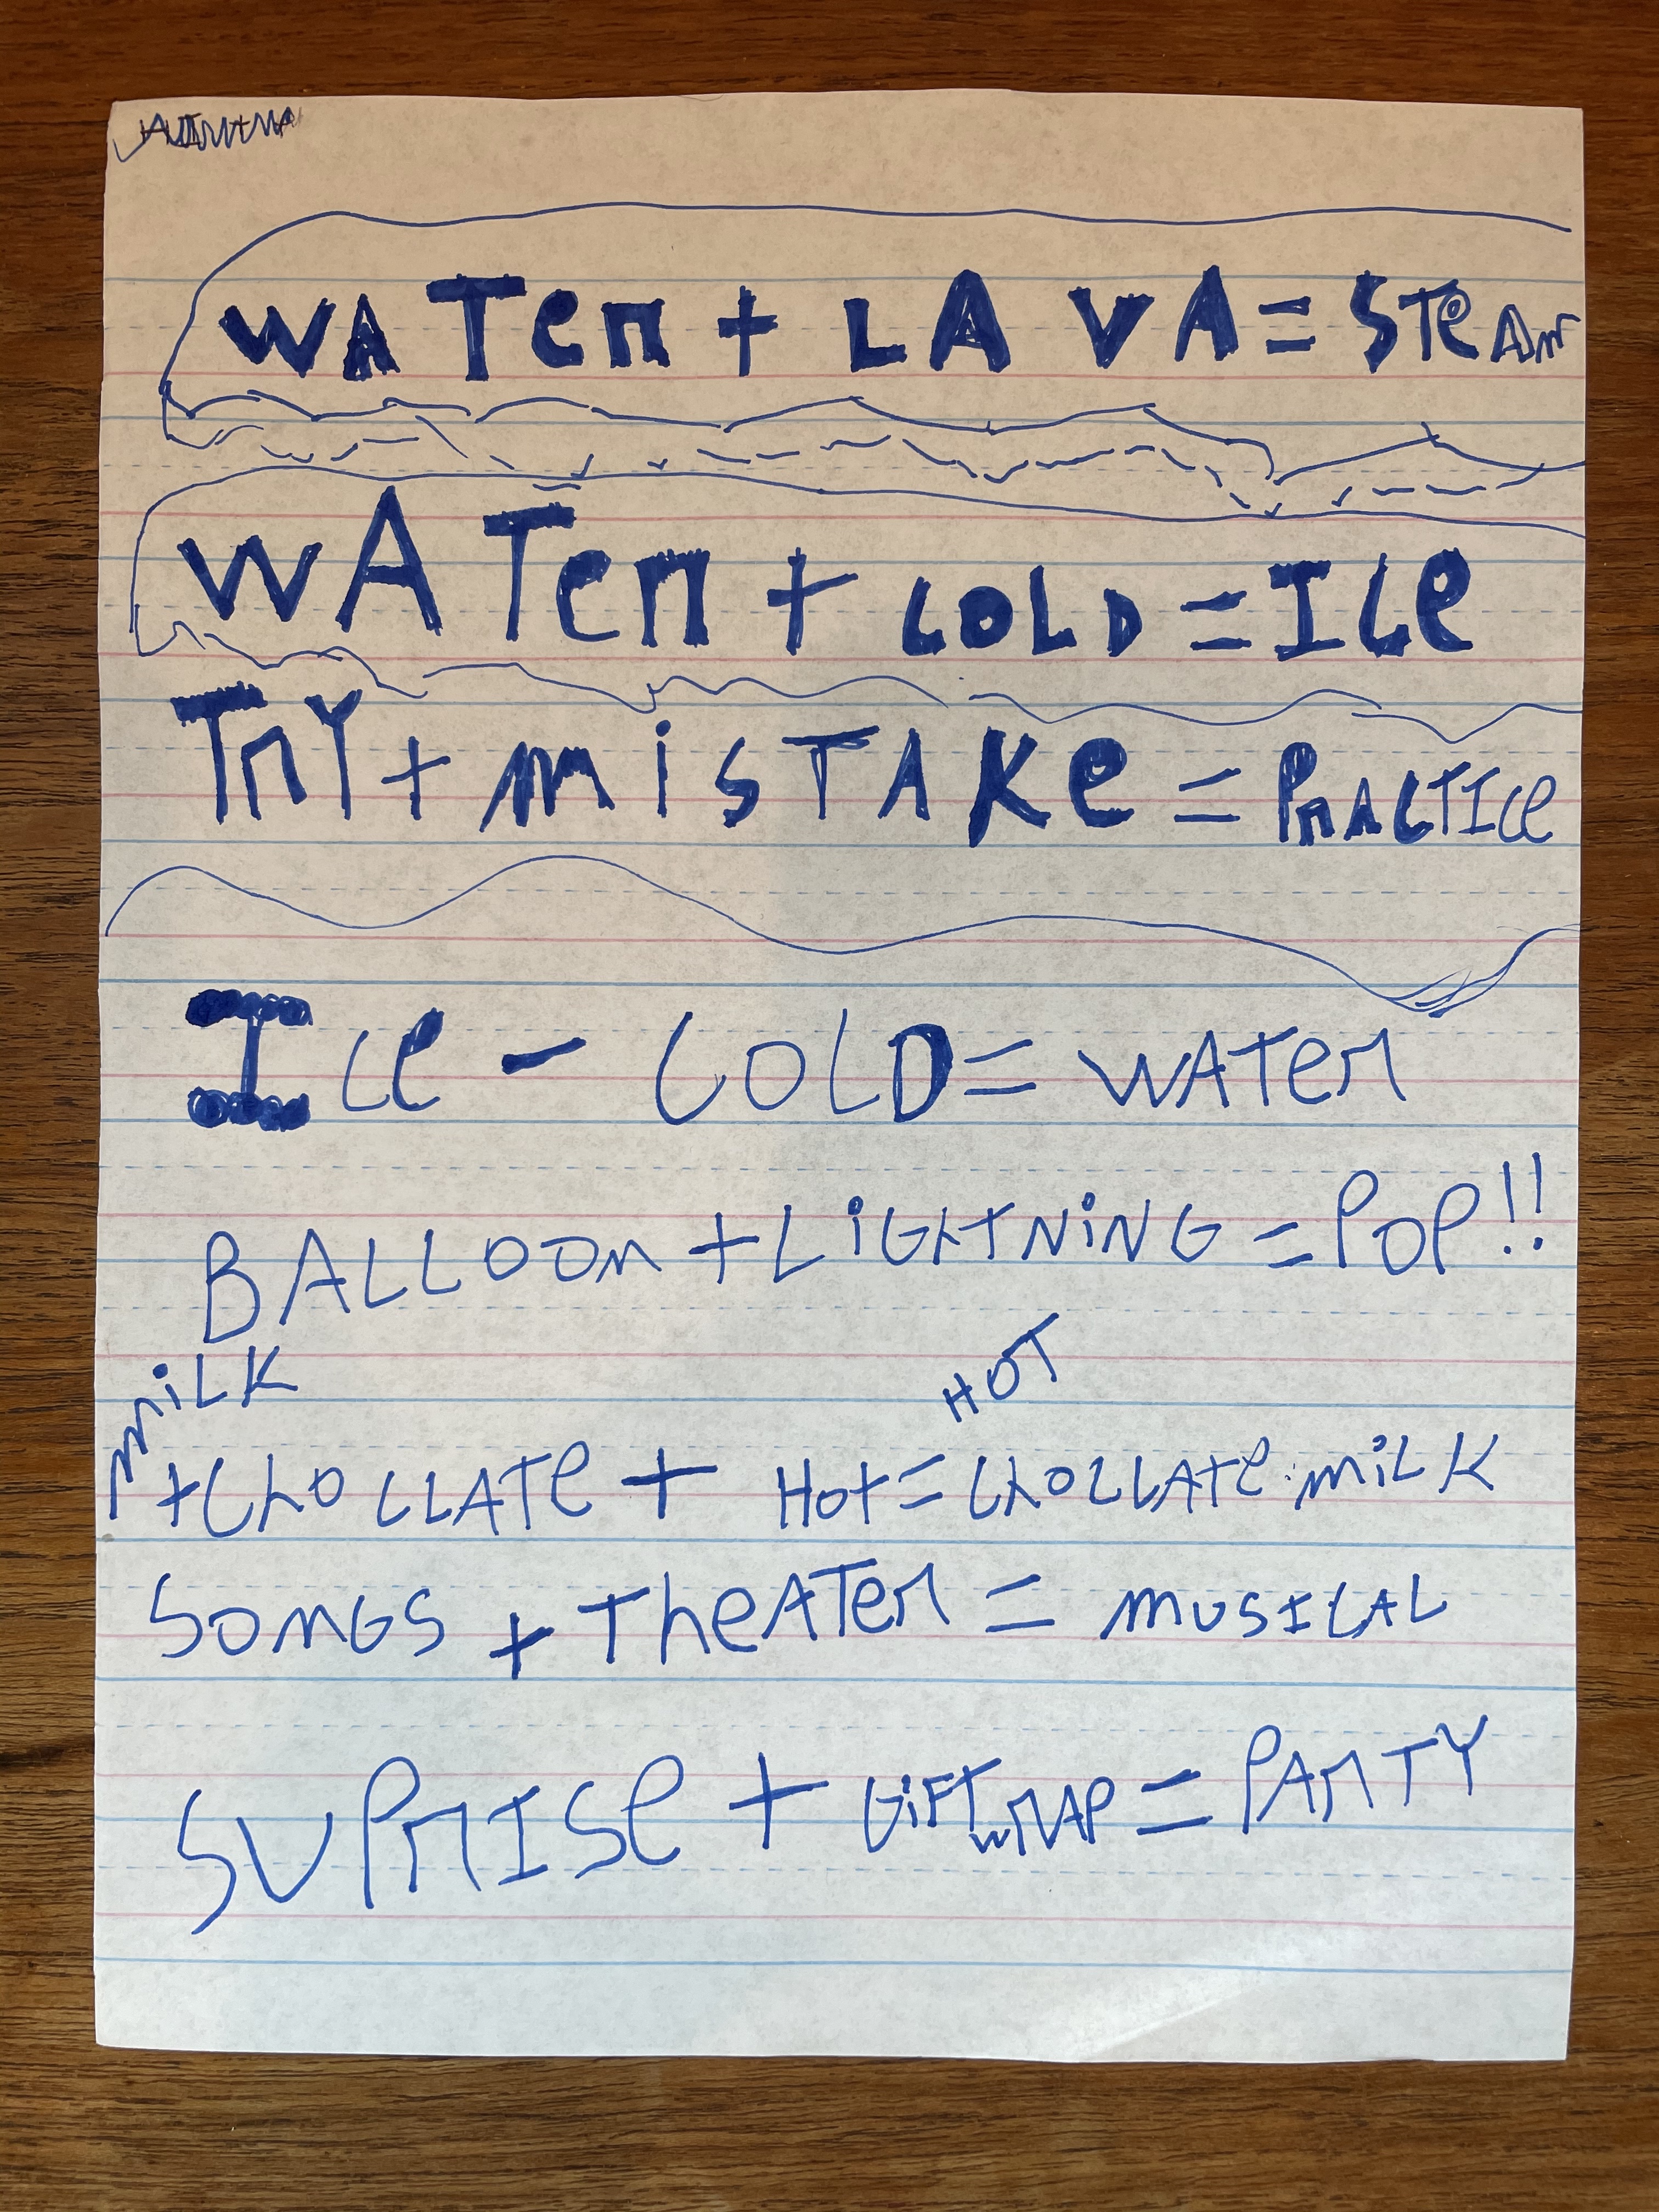 WATer + LAVA = STeAm
WATer + COLD = ICe
TrY + miSTAKe = PrACTICe
ICe - COLD = WATer
BALLOOn + LiGHTNiNG = POP!!
miLK HOT
+ ChOCLATe + Hot = ChOCLATe miLK
SOnGS + TheATer = mUSICAL
SUPrISe + GiFTwrAP = PArTY